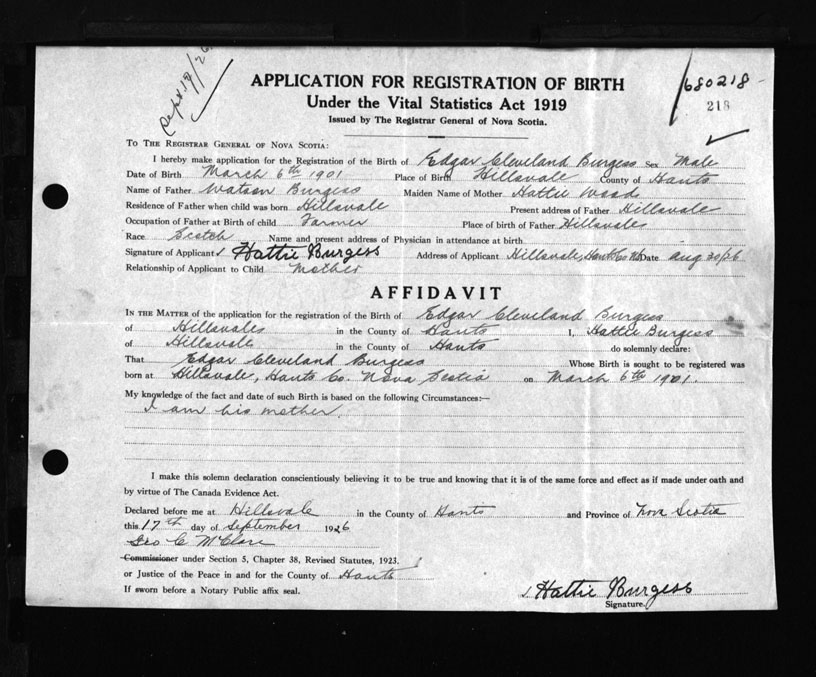 Sept 18/26
APPLICATION FOR REGISTRATION OF BIRTH
680218
Under the Vital Statistics Act 1919
218
Issued by The Registrar General of Nova Scotia.
TO THE REGISTRAR GENERAL OF NOVA SCOTIA:
I hereby make application for the Registration of the Birth of Edgar Cleveland Burgess Sex Male
Date of Birth March 6th 1901 Place of Birth Hillsvale County of Hants
Name of Father Watson Burgess Maiden Name of Mother Hattie Wood
Residence of Father when child was born Hillsvale Present address of Father Hillsvale
Occupation of Father at Birth of child Farmer Place of birth of Father Hillsvale
Race Scotch Name and present address of Physician in attendance at birth
Signature of Applicant Hattie Burgess Address of Applicant Hillsvale, Hants Co NS Date Aug 30/26
Relationship of Applicant to Child Mother
AFFIDAVIT
IN THE MATTER of the application for the registration of the Birth of Edgar Cleveland Burgess
of Hillsvale in the County of Hants I, Hattie Burgess
of Hillsvale in the County of Hants do solemnly declare:
That Edgar Cleveland Burgess Whose Birth is sought to be registered was
born at Hillsvale, Hants Co. Nova Scotia on March 6th 1901.
My knowledge of the fact and date of such Birth is based on the following Circumstances:—
I am his mother.
I make this solemn declaration conscientiously believing it to be true and knowing that it is of the same force and effect as if made under oath and
by virtue of The Canada Evidence Act.
Declared before me at Hillsvale in the County of Hants and Province of Nova Scotia
this 17th day of September 1926
Geo C McClare
Commissioner under Section 5, Chapter 38, Revised Statutes, 1923.
or Justice of the Peace in and for the County of Hants
If sworn before a Notary Public affix seal.
Hattie Burgess
Signature.